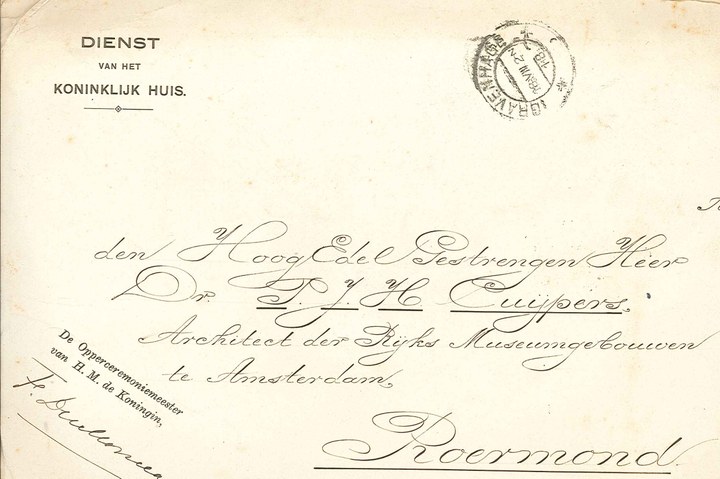 DIENST
VAN HET
KONINKLIJK HUIS.
den HoogEdel Gestrengen Heer
Dr. P. J. H. Cuijpers,
Architect der Rijks Museumgebouwen
te Amsterdam,
Roermond.
De Opperceremoniemeester
van H. M. de Koningin,